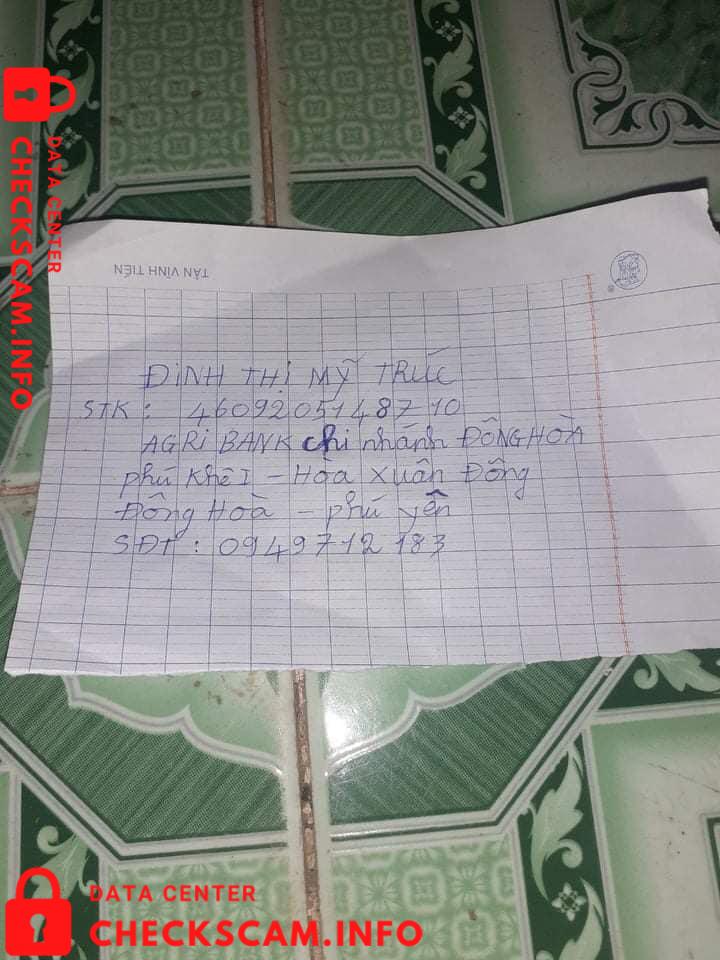 DATA CENTER
CHECKSCAM.INFO
TÂN VĨNH TIẾN
ĐINH THỊ MỸ TRÚC
STK : 4609205148710
AGRIBANK chi nhánh ĐÔNG HOÀ
phú Khê I - Hòa Xuân Đông
Đông Hoà - phú yên
SĐT : 0949712183
DATA CENTER
CHECKSCAM.INFO